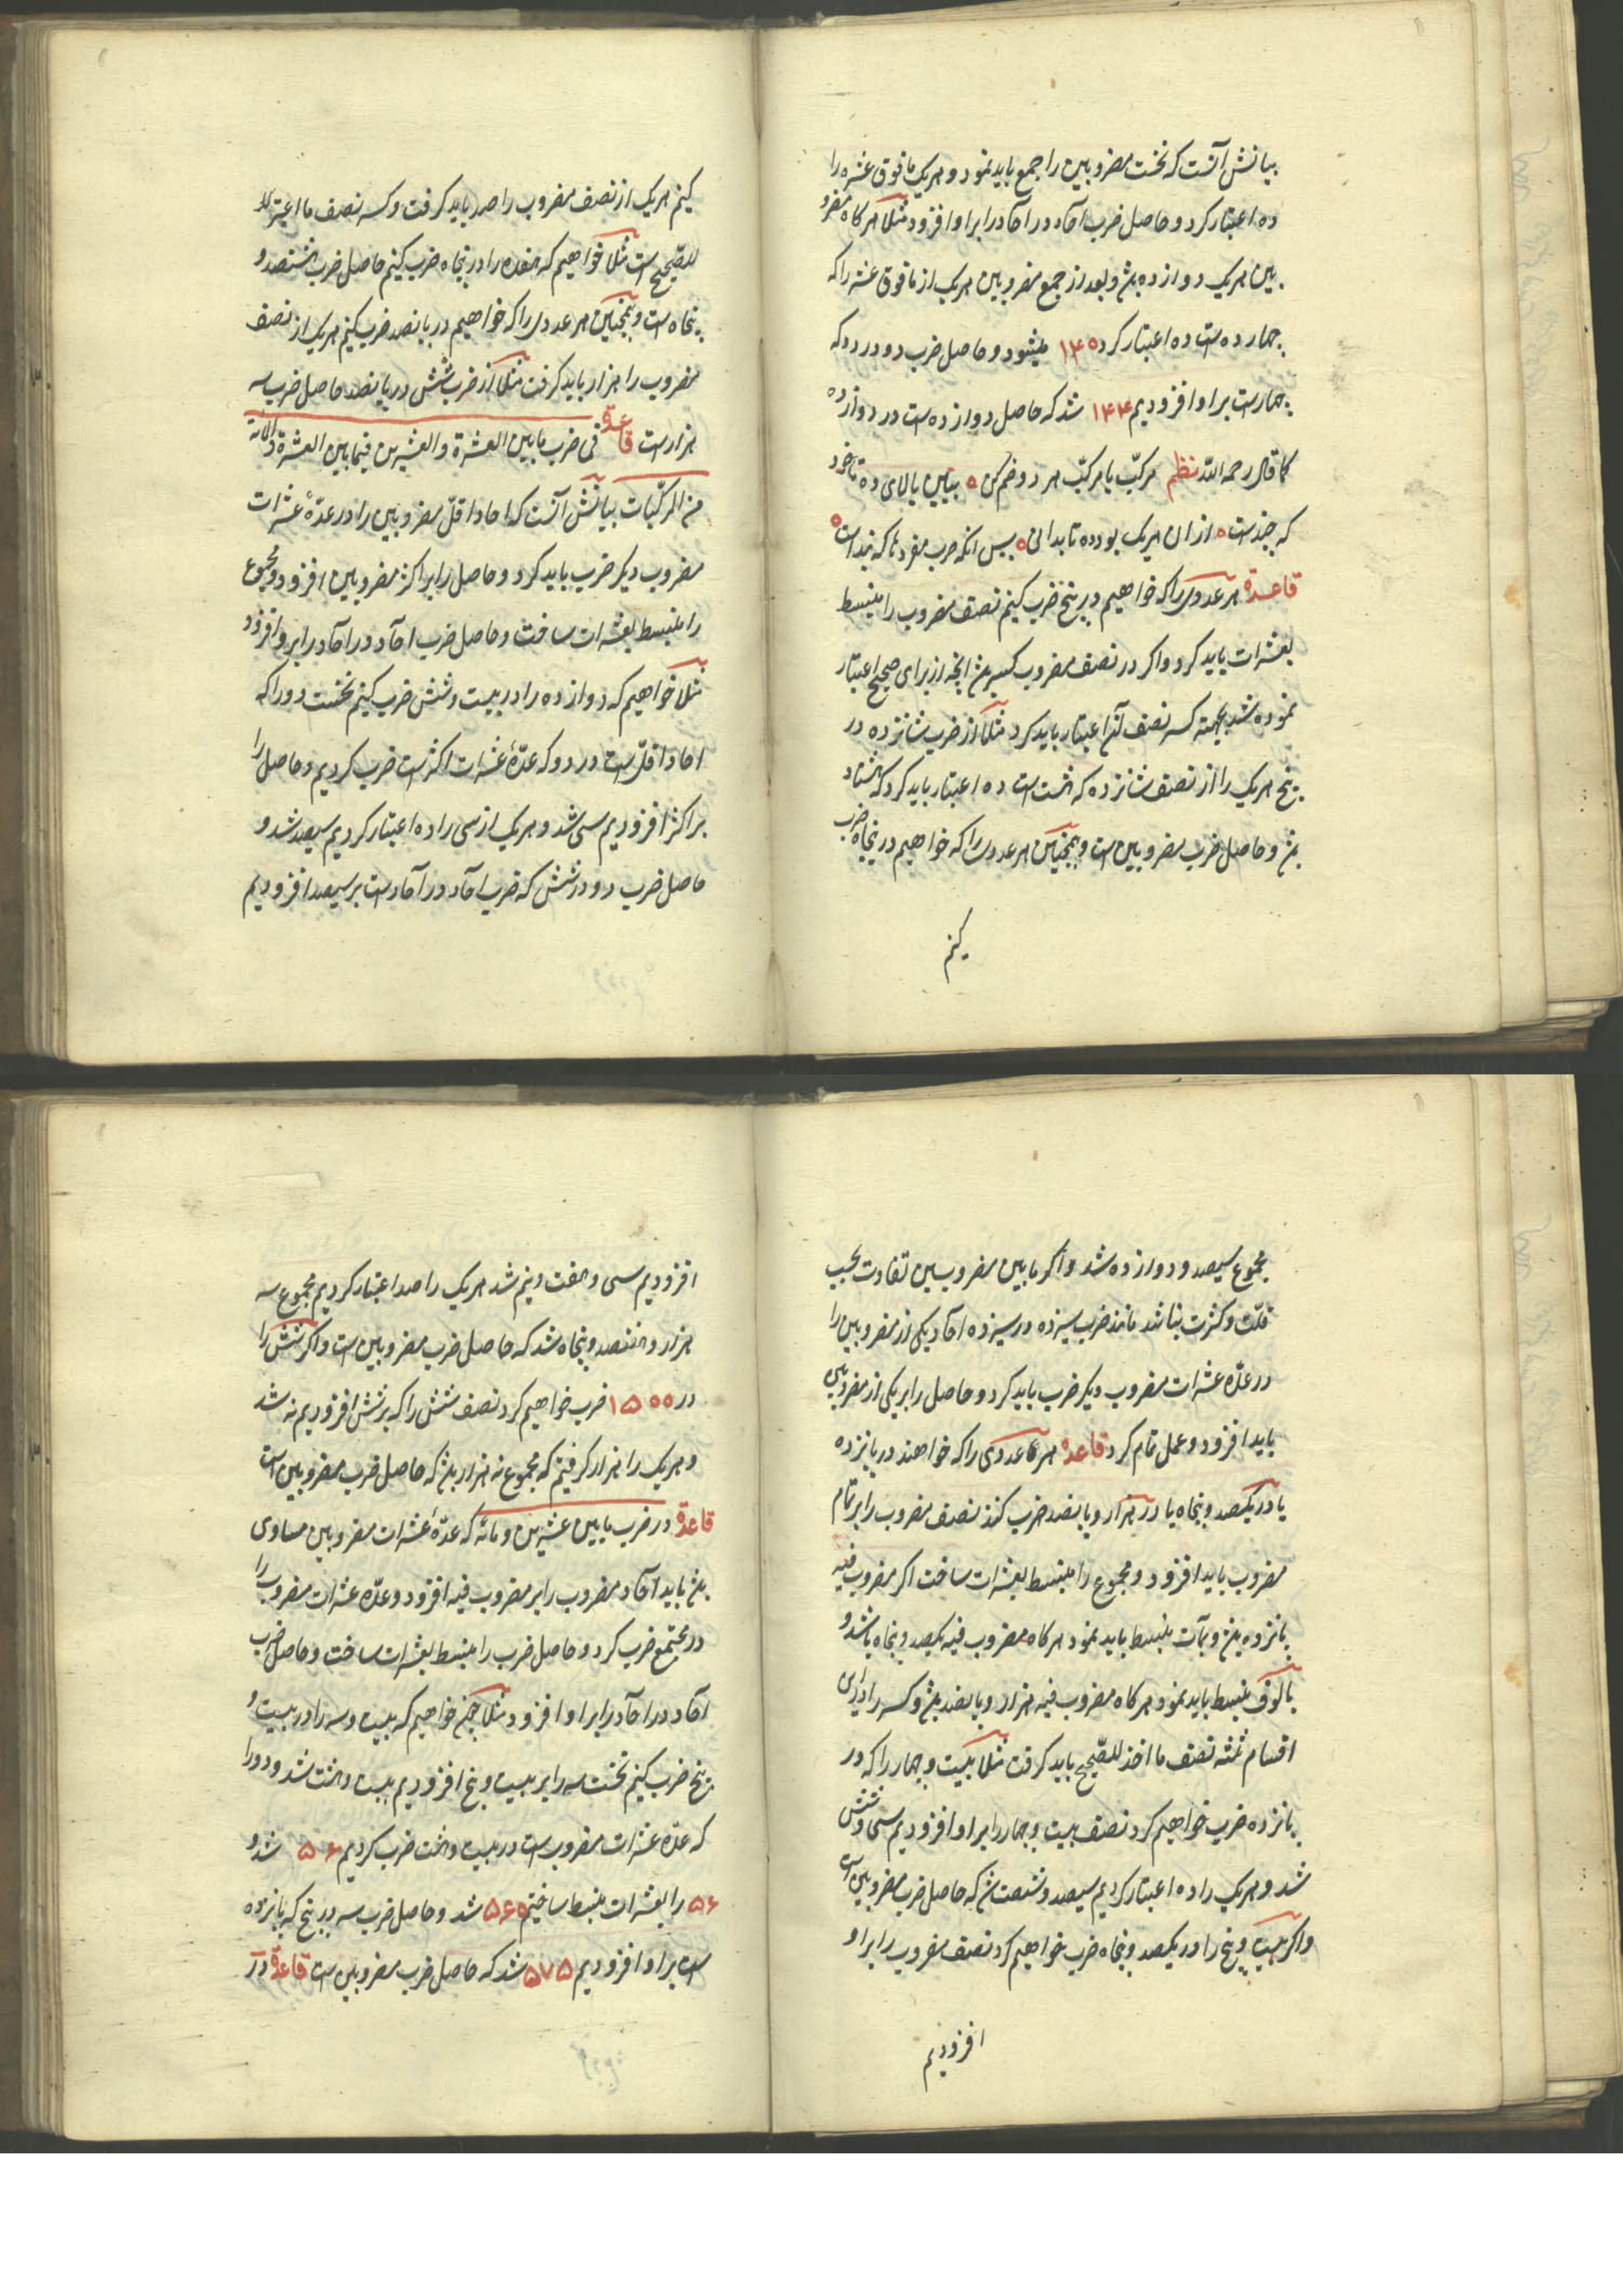 بیانش آنست که نخست مضروبین را جمع باید نمود و هریک مافوق عشره را
ده اعتبار کرد و حاصل ضرب آحاد در آحاد را براو افزود مثلا هرگاه مضرو
بین هریک دوازده بود و بعد از جمع مضروبین هریک از مافوق عشره را که
چهارده است ده اعتبار کرد ۱۴۰ میشود و حاصل ضرب دو در دو که
چهارست براو افزودیم ۱۴۴ شد که حاصل دوازده است در دوازده
کما قال رحمه الله نظم مرکّب با مرکّب هر دو ضم کن ببین بالای ده تا خود
که چندست از ان هریک بود ده تا بدانی پس آنگه ضرب مفردها که چنداست
قاعدة هر عددی را که خواهیم در پنج ضرب کنیم نصف مضروب را منبسط
بعشرات باید کرد و اگر در نصف مضروب کسر بود آنچه از برای صحیح اعتبار
نموده شد بجهته کسر نصف آنرا اعتبار باید کرد مثلا از ضرب شانزده در
پنج هریک را از نصف شانزده که هشت است ده اعتبار باید کرد که هشتاد
بود و حاصل ضرب مضروبین است و همچنین هر عددی را که خواهیم در پنجاه ضرب
کنیم
کنیم هریک از نصف مضروب را صد باید گرفت و کسر نصف ما اعتبر
للصّحیح است مثلا خواهیم که هفده را در پنجاه ضرب کنیم حاصل ضرب هشتصد و
پنجاه است و همچنین هر عددی را که خواهیم در پانصد ضرب کنیم هریک از نصف
مضروب را هزار باید گرفت مثلا از ضرب شش در پانصد حاصل ضرب سه
هزارست قاعدة فی ضرب ما بین العشرة و العشرین فیما بین العشرة و المائة
من المرکّبات بیانش آنست که احاد اقلّ مضروبین را در عدّهٔ عشرات
مضروب دیگر ضرب باید کرد و حاصل را بر اکثر مضروبین افزود و مجموع
را منبسط بعشرات ساخت و حاصل ضرب احاد در آحاد را برو افزود
مثلا خواهیم که دوازده را در بیست و شش ضرب کنیم نخست دو را که
احاد اقلّ است در دو که عدّهٔ عشرات اکثرست ضرب کردیم و حاصل را
بر اکثر افزودیم سی شد و هریک از سی را ده اعتبار کردیم سیصد شد و
حاصل ضرب دو در شش که ضرب آحاد در آحادست بر سیصد افزودیم
مجموع سیصد و دوازده شد و اگر ما بین مضروبین تفاوت بحسب
قلّت و کثرت نباشد مانند ضرب سیزده در سیزده آحاد یکی از مضروبین را
در عدّه عشرات مضروب دیگر ضرب باید کرد و حاصل را بر یکی از مضروبین
باید افزود و عمل تمام کرد قاعدة هرگاه عددی را که خواهند در پانزده
یا در یکصد و پنجاه یا در هزار و پانصد ضرب کنند نصف مضروب را بر تمام
مضروب باید افزود و مجموع را منبسط بعشرات ساخت اگر مضروب فیه
پانزده بود و بمآت منبسط باید نمود هرگاه مضروب فیه یکصد و پنجاه باشد و
بالوف منبسط باید نمود هرگاه مضروب فیه هزار و پانصد بود و کسر را در این
اقسام ثلثه نصف ما اخذ للصّحیح باید گرفت مثلا بیست و چهار را که در
پانزده ضرب خواهیم کرد نصف بیست و چهار را براو افزودیم سی و شش
شد و هریک را ده اعتبار کردیم سیصد و شصت شد که حاصل ضرب مضروبین است
و اگر بیست و پنج را در یکصد و پنجاه ضرب خواهیم کرد نصف مضروب را براو
افزودیم
افزودیم سی و هفت و نیم شد هریک را صد اعتبار کردیم مجموع سه
هزار و هفتصد و پنجاه شد که حاصل ضرب مضروبین است و اگر شش را
در ۱۵۰۰ ضرب خواهیم کرد نصف شش را که بر شش افزودیم نه شد
و هریک را هزار گرفتیم که مجموع نه هزار بود که حاصل ضرب مضروبین است
قاعدة در ضرب ما بین عشرین و مائه که عدّهٔ عشرات مضروبین مساوی
بود باید آحاد مضروب را بر مضروب فیه افزود و عدّه عشرات مضروب را
در مجتمع ضرب کرد و حاصل ضرب را منبسط بعشرات ساخت و حاصل ضرب
آحاد در آحاد را براو افزود مثلا چون خواهیم که بیست و سه را در بیست و
پنج ضرب کنیم نخست سه را بر بیست و پنج افزودیم بیست و هشت شد و دو را
که عدّه عشرات مضروب است در بیست و هشت ضرب کردیم ۵۶ شد و
۵۶ را بعشرات منبسط ساختیم ۵۶۰ شد و حاصل ضرب سه در پنج که پانزده
است براو افزودیم ۵۷۵ شد که حاصل ضرب مضروبین است قاعدة در